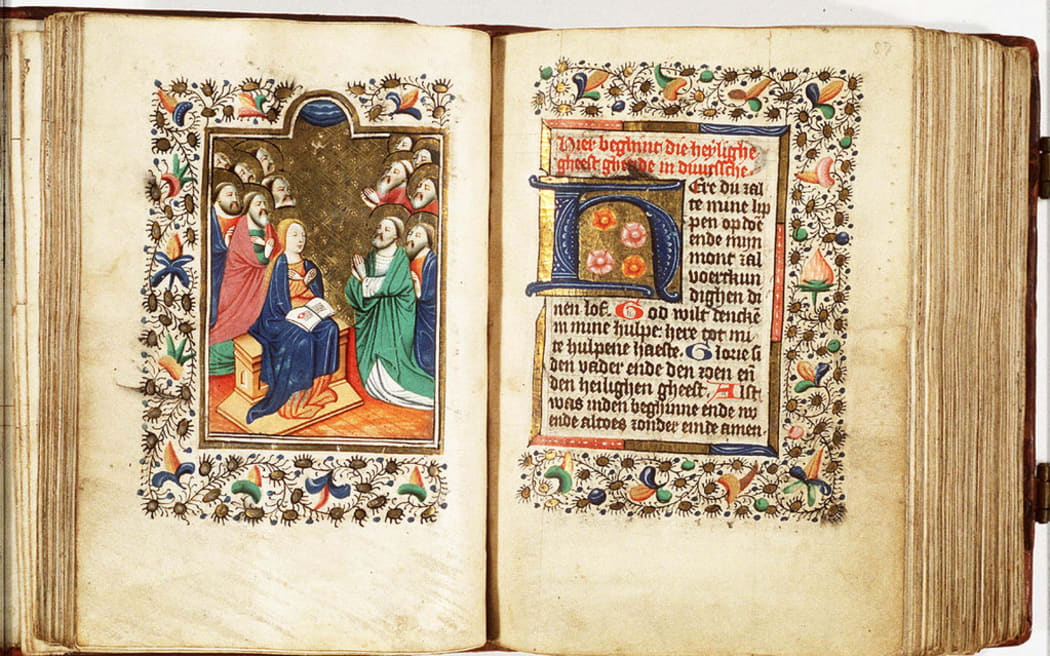 57
Hier beghint die heylighe
gheest ghetide in duutssche.
Ere du zal
te mine lip
pen op doē
ende mijn
mont zal
voertkun
dighen di
nen lof. God wilt denckē
in mine hulpe here tot mi
te hulpene haeste. Glorie si
den vader ende den zoen eñ
den heilighen gheest. Alst
was inden beghinne ende nv
ende altoes zonder einde amen.